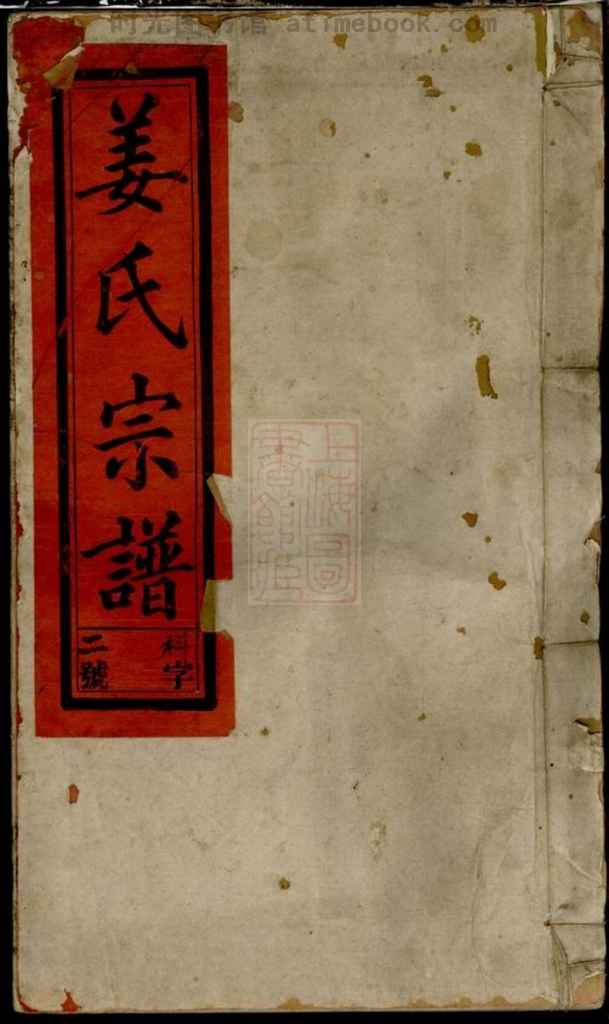 时光图书馆 atimebook.com
姜氏宗譜
科字
二號
上海圖
書館藏